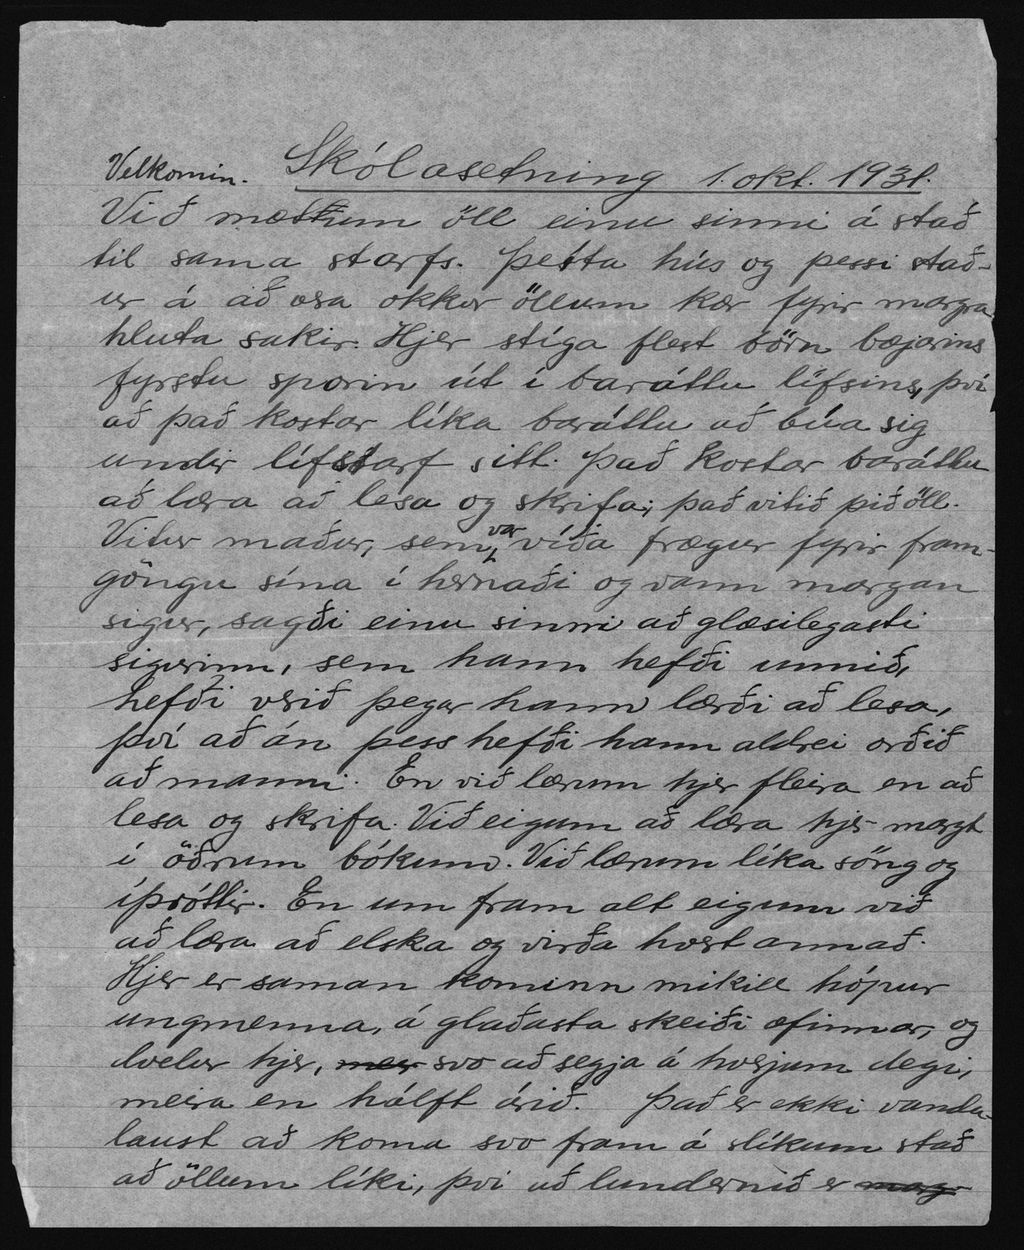 Velkomin. Skólasetning 1. okt. 1931.
Við mættum öll einu sinni á stað
til sama starfs. Þetta hús og þessi stað-
ur á að vera okkur öllum kær fyrir margra
hluta sakir. Hjer stíga flest börn bæjarins
fyrstu sporin út í baráttu lífsins, því
að það kostar líka baráttu að búa sig
undir lífstarf sitt. Það kostar baráttu
að læra að lesa og skrifa; það vitið þið öll.
Vitur maður, sem var víða frægur fyrir fram-
göngu sína í hernaði og vann margan
sigur, sagði einu sinni að glæsilegasti
sigurinn, sem hann hefði unnið,
hefði verið þegar hann lærði að lesa,
því að án þess hefði hann aldrei orðið
að manni. En við lærum hjer fleira en að
lesa og skrifa. Við eigum að læra hjer margt
í öðrum bókum. Við lærum líka söng og
íþróttir. En um fram alt eigum við
að læra að elska og virða hvert annað.
Hjer er saman kominn mikill hópur
ungmenna, á glaðasta skeiði æfinnar, og
dvelur hjer, svo að segja á hverjum degi,
meira en hálft árið. Það er ekki vanda-
laust að koma svo fram á slíkum stað
að öllum líki, því að lundernið er marg